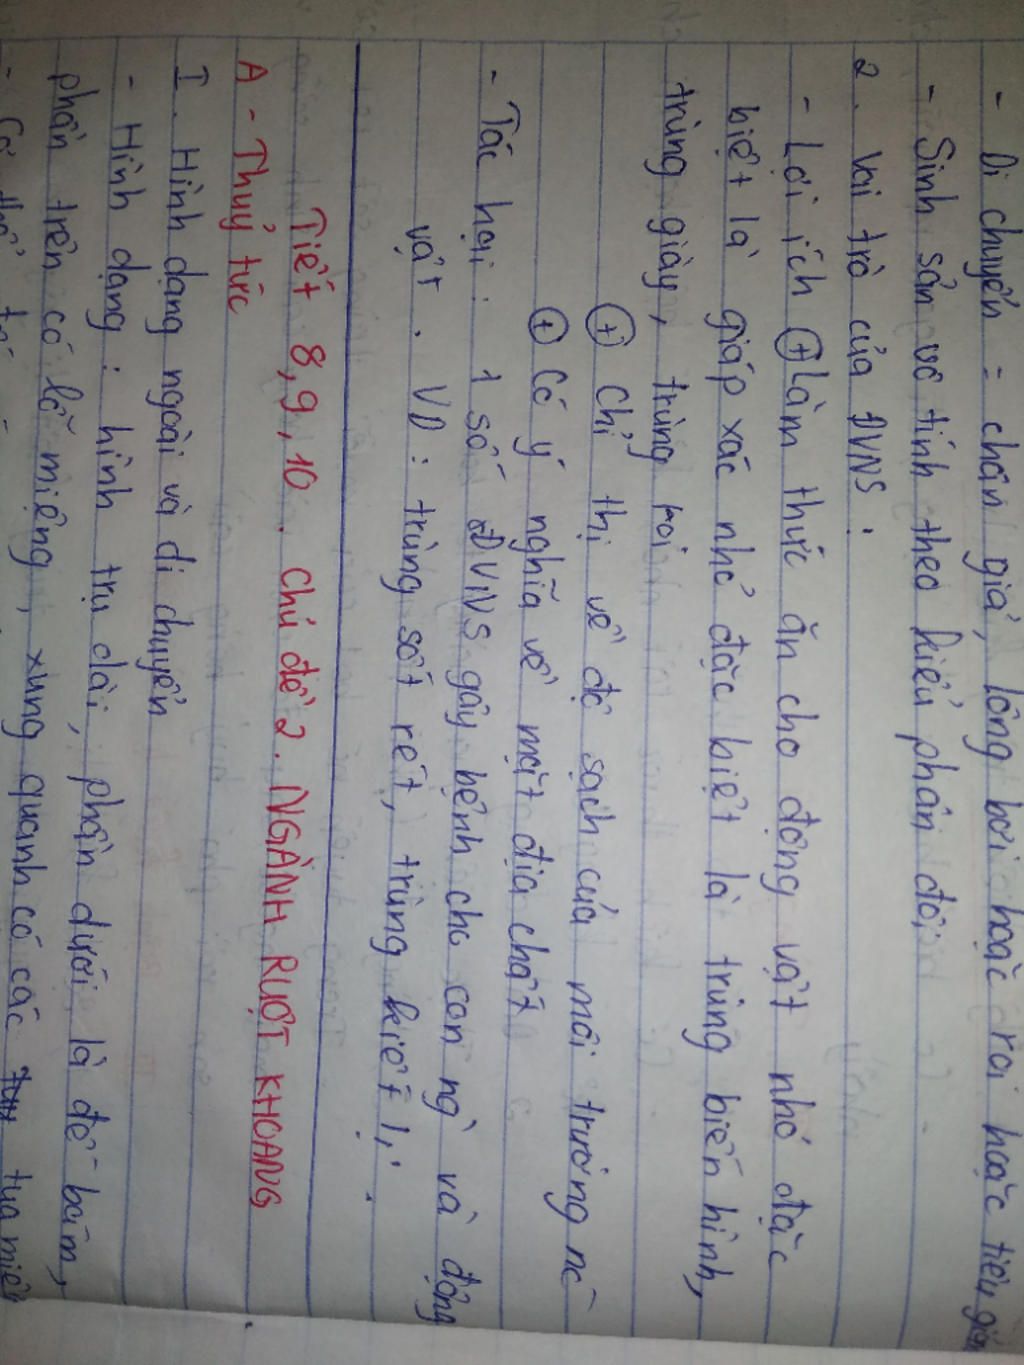 - Di chuyển = chân giả, lông bơi hoặc roi hoặc tiêu giảm
- Sinh sản vô tính theo kiểu phân đôi
2. Vai trò của ĐVNS :
- Lợi ích ⊕ Làm thức ăn cho động vật nhỏ đặc
biệt là giáp xác nhỏ đặc biệt là trùng biến hình,
trùng giày, trùng roi
⊕ Chỉ thị về độ sạch của môi trường nc
⊕ Có ý nghĩa về mặt địa chất
- Tác hại : 1 số ĐVNS gây bệnh cho con ng và động
vật . VD : trùng sốt rét, trùng kiết lị .
Tiết 8, 9, 10 . Chủ đề 2. NGÀNH RUỘT KHOANG
A - Thuỷ tức
I. Hình dạng ngoài và di chuyển
- Hình dạng : hình trụ dài, phần dưới là đế bám,
phần trên có lỗ miệng, xung quanh có các tua miệng
- Cơ thể